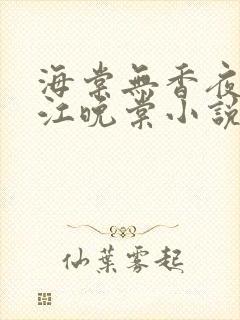 海棠無香夜
江晚棠小說
仙葉霧起